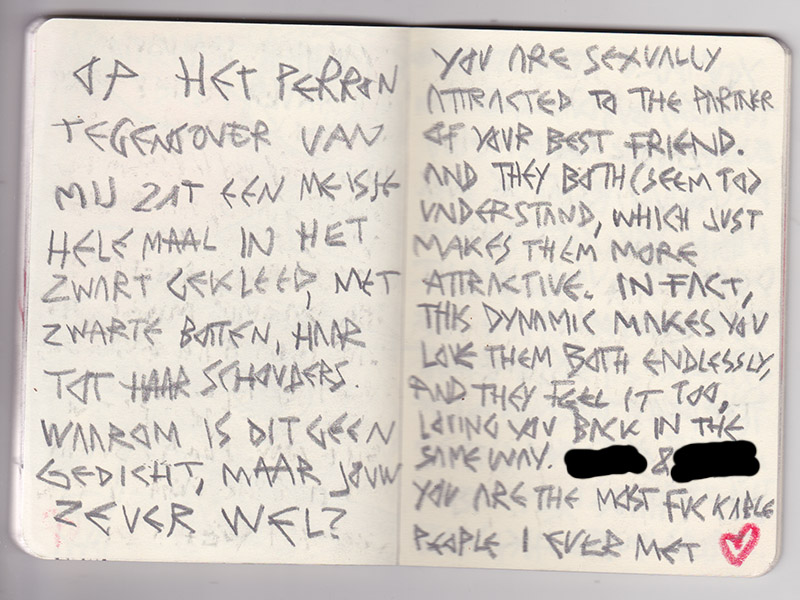 OP HET PERRON
TEGENOVER VAN
MIJ ZAT EEN MEISJE
HELEMAAL IN HET
ZWART GEKLEED, MET
ZWARTE BOTTEN, HAAR
TOT HAAR SCHOUDERS.
WAAROM IS DIT GEEN
GEDICHT, MAAR JOUW
ZEVER WEL?
YOU ARE SEXUALLY
ATTRACTED TO THE PARTNER
OF YOUR BEST FRIEND.
AND THEY BOTH (SEEM TO)
UNDERSTAND, WHICH JUST
MAKES THEM MORE
ATTRACTIVE. IN FACT,
THIS DYNAMIC MAKES YOU
LOVE THEM BOTH ENDLESSLY,
AND THEY FEEL IT TOO,
LOVING YOU BACK IN THE
SAME WAY. &
YOU ARE THE MOST FUCKABLE
PEOPLE I EVER MET